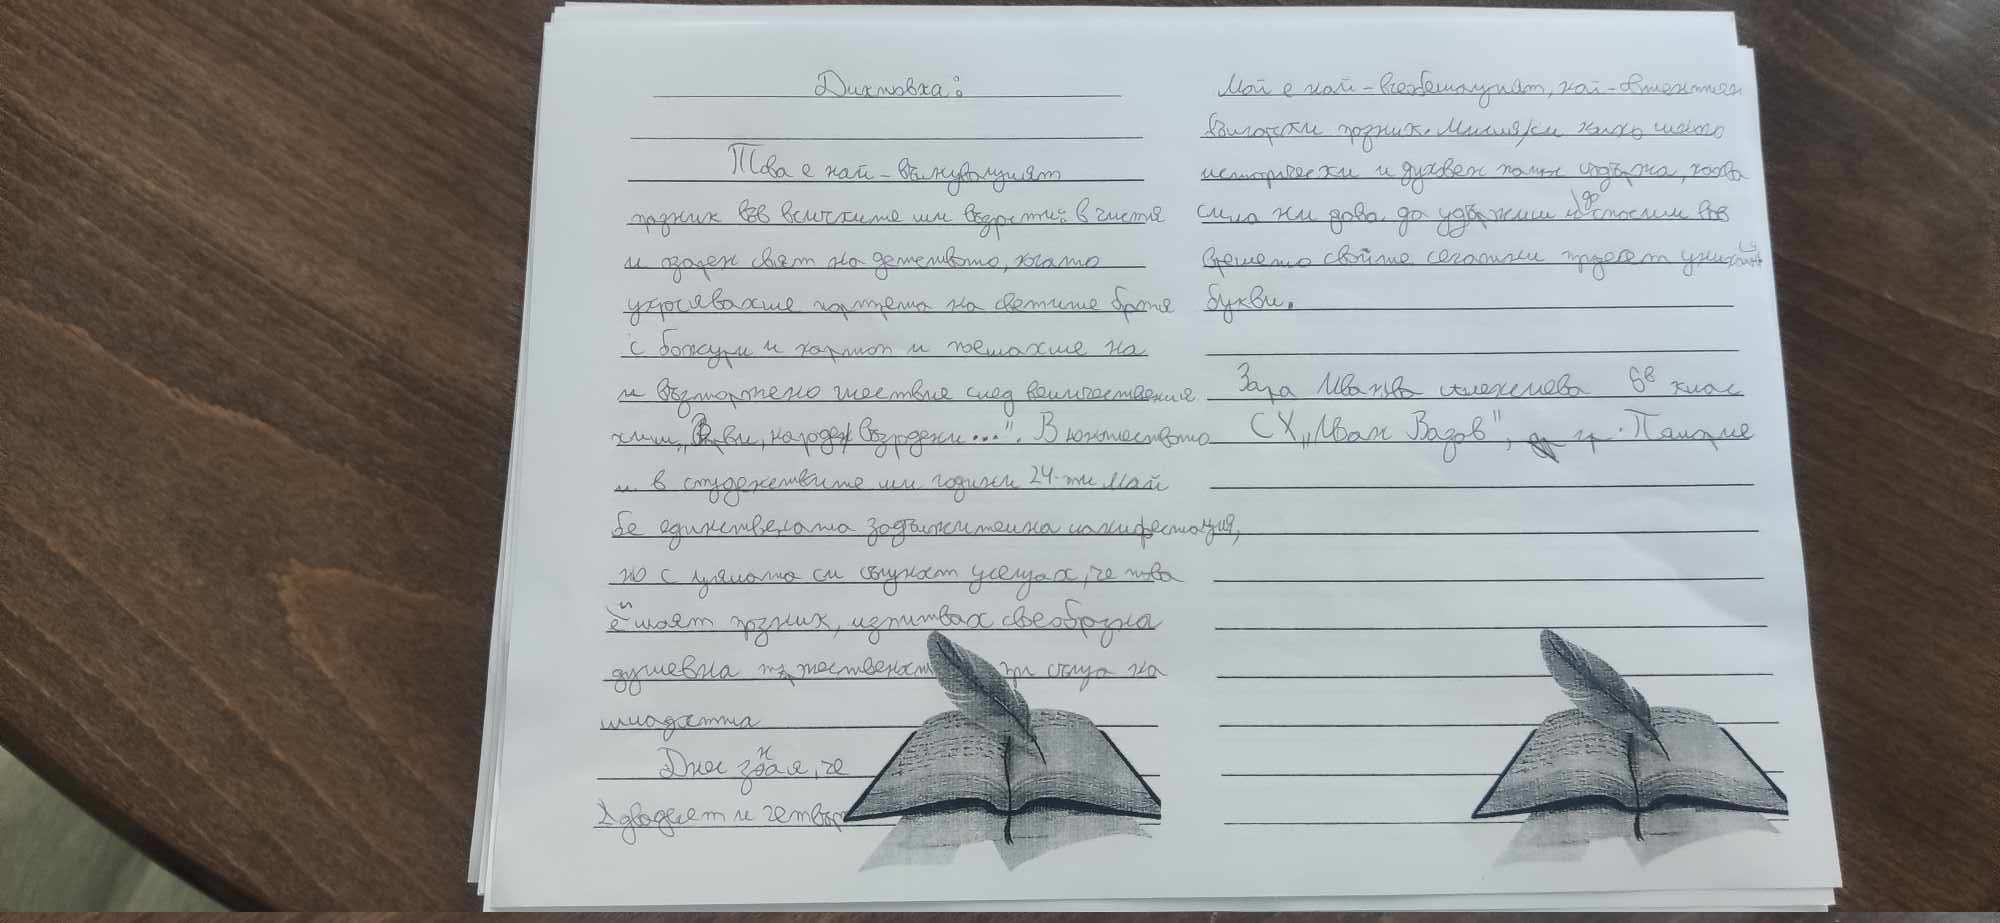 Диктовка:
Това е най-вълнуващият
празник във всичките ми възрасти: в чистия
и озарен свят на детството, когато
украсявахме портрета на светите братя
с божури и здравец и поемахме на
и възторжено шествие след величествения
химн „Върви, народе възродени...". В юношеството
и в студентските ми години 24-ти май
бе единствената задължителна манифестация,
но с цялата си същност усещах, че това
е и моят празник, изпитвах своеобразна
душевна тържественост при сбора на
младостта
Днес зная, че
двадесет и четвърти
Май е най-възвишеният, най-
български празник. Мисля си колко много
исторически и духовен памет съдържа, каква
сила ни дава да удържим и до спасим във
времето свойте сегашни тридесет уникални
букви.
Зара Иванова Алексиева 6в клас
СУ „Иван Вазов", гр.